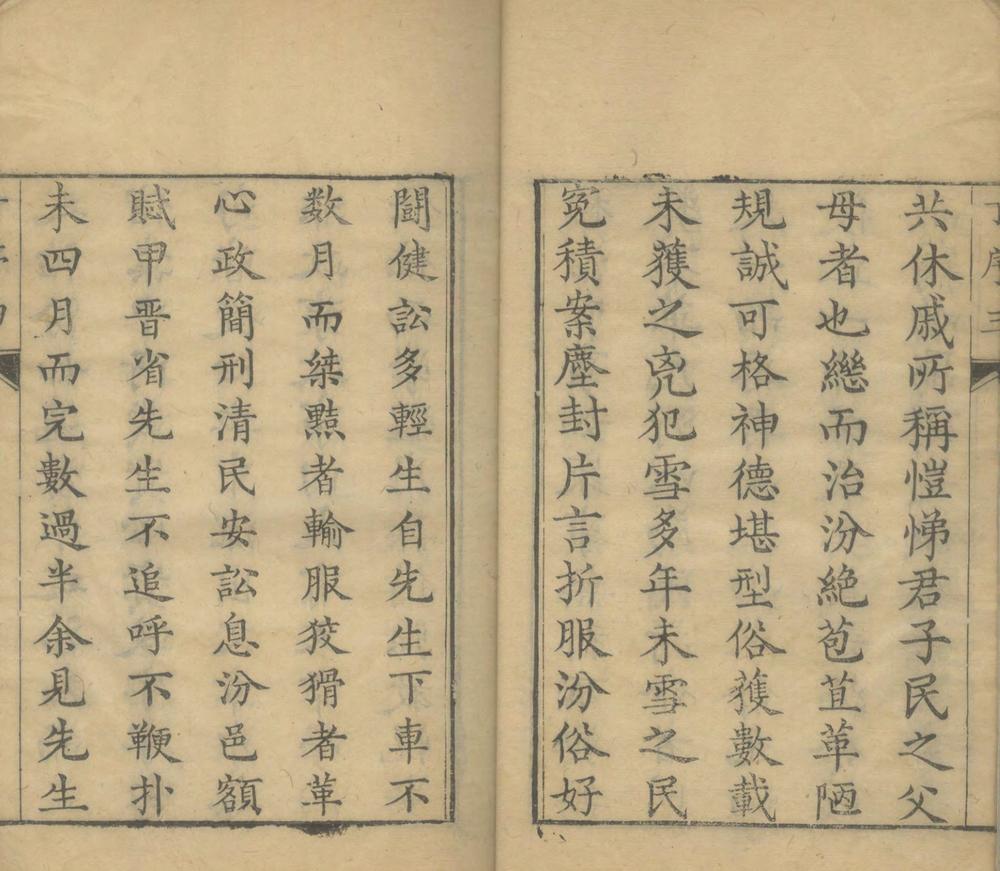 共休戚所稱愷悌君子民之父
母者也繼而治汾絶苞苴革陋
規誠可格神德堪型俗獲數載
未獲之兇犯雪多年未雪之民
寃積案塵封片言折服汾俗好
鬪健訟多輕生自先生下車不
数月而桀黠者輸服狡猾者革
心政簡刑清民安訟息汾邑額
賦甲晋省先生不追呼不鞭扑
未四月而完數過半余見先生